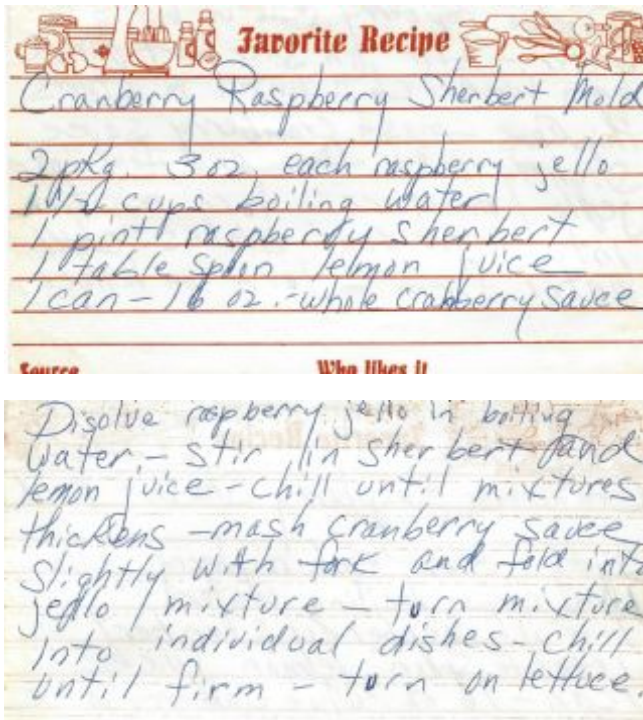 Favorite Recipe
Cranberry Raspberry Sherbert Mold
2 pkg. 3 oz. each raspberry jello
1 1/2 cups boiling water
1 pint raspberry sherbert
1 table spoon lemon juice
1 can - 16 oz. - whole cranberry sauce
Source Who likes it
Disolve raspberry jello in boiling
water - stir in sherbert and
lemon juice - chill until mixtures
thickens - mash cranberry sauce
slightly with fork and fold into
jello mixture - turn mixture
into individual dishes - chill
until firm - turn on lettuce